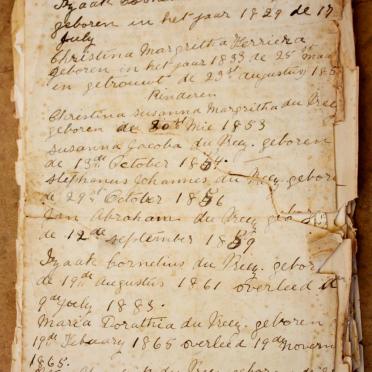 geboren in het jaar 1829 de 17
July
Christina Margritha Herriera
geboren in het jaar 1833 de 25st Maa
en getrouwt de 23st augustus 185
Kinderen
Christina Susanna Margritha du Preez
geboren de 20st Mie 1853
Susanna Jacoba du Preez. geboren
de 13de October 1854.
Stephanus Johannes du Preez gebore
de 29st October 1856
Jan Abraham du Preez gebor
de 12de September 1859
Izaak Cornelius du Preez. gebor
de 19de augustus 1861 overleed d
9de July 1883.
Maria Dorathia du Preez. geboren
19de Februarij 1865 overleed 19de novem
1865.